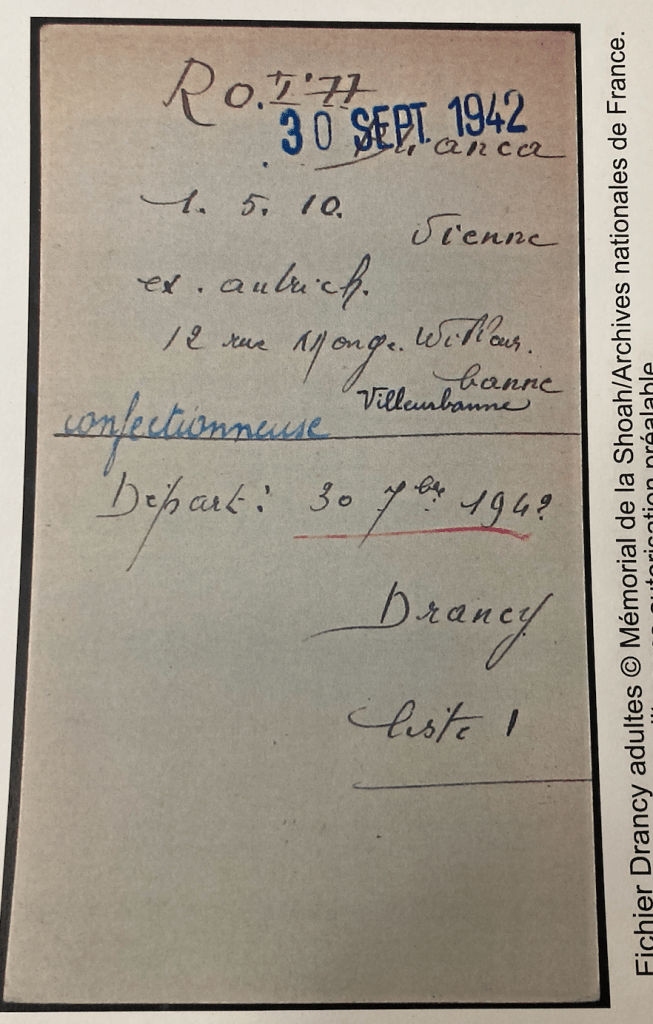 30 SEPT. 1942
Bianca
1. 5. 10.
Vienne
ex. autrich.
12 rue Monge. Willeur.
banne
Villeurbanne
confectionneuse
Départ: 30 7bre 1942
Drancy
liste 1
Fichier Drancy adultes © Mémorial de la Shoah/Archives nationales de France.
autorisation préalable